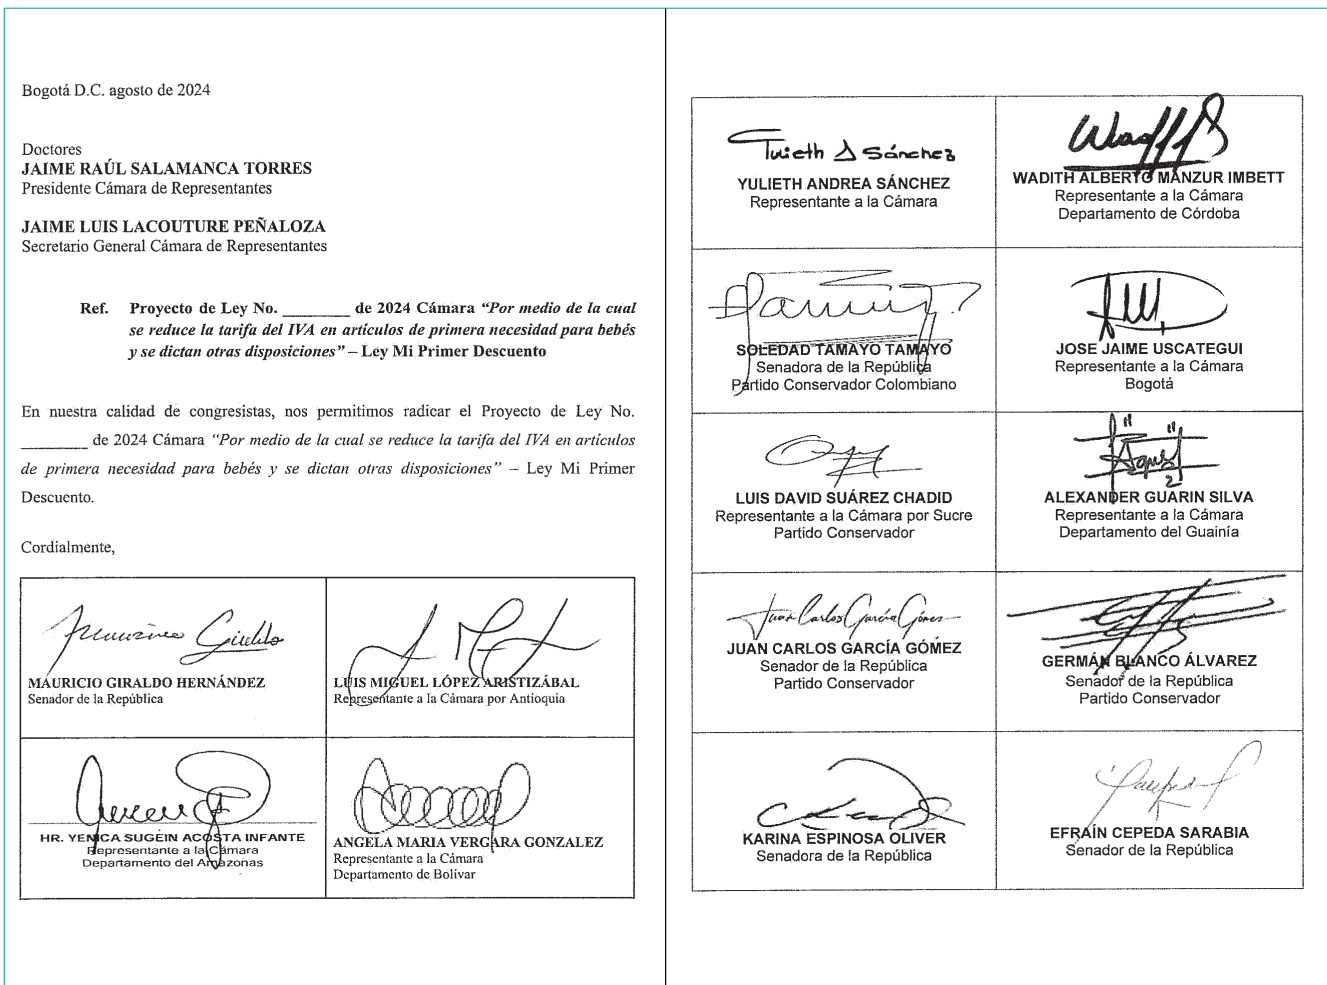 Bogotá D.C. agosto de 2024
Doctores
JAIME RAÚL SALAMANCA TORRES
Presidente Cámara de Representantes
JAIME LUIS LACOUTURE PEÑALOZA
Secretario General Cámara de Representantes
Ref. Proyecto de Ley No. ________ de 2024 Cámara “Por medio de la cual
se reduce la tarifa del IVA en artículos de primera necesidad para bebés
y se dictan otras disposiciones” – Ley Mi Primer Descuento
En nuestra calidad de congresistas, nos permitimos radicar el Proyecto de Ley No.
________ de 2024 Cámara “Por medio de la cual se reduce la tarifa del IVA en artículos
de primera necesidad para bebés y se dictan otras disposiciones” – Ley Mi Primer
Descuento.
Cordialmente,
Mauricio Giraldo
MAURICIO GIRALDO HERNÁNDEZ
Senador de la República
LUIS MIGUEL LÓPEZ ARISTIZÁBAL
Representante a la Cámara por Antioquia
HR. YENICA SUGEIN ACOSTA INFANTE
Representante a la Cámara
Departamento del Amazonas
ANGELA MARIA VERGARA GONZALEZ
Representante a la Cámara
Departamento de Bolívar
Yulieth A Sánchez
YULIETH ANDREA SÁNCHEZ
Representante a la Cámara
WADITH ALBERTO MANZUR IMBETT
Representante a la Cámara
Departamento de Córdoba
SOLEDAD TAMAYO TAMAYO
Senadora de la República
Partido Conservador Colombiano
JOSE JAIME USCATEGUI
Representante a la Cámara
Bogotá
LUIS DAVID SUÁREZ CHADID
Representante a la Cámara por Sucre
Partido Conservador
ALEXANDER GUARIN SILVA
Representante a la Cámara
Departamento del Guainía
Juan Carlos García Gómez
JUAN CARLOS GARCÍA GÓMEZ
Senador de la República
Partido Conservador
GERMÁN BLANCO ÁLVAREZ
Senador de la República
Partido Conservador
KARINA ESPINOSA OLIVER
Senadora de la República
EFRAÍN CEPEDA SARABIA
Senador de la República